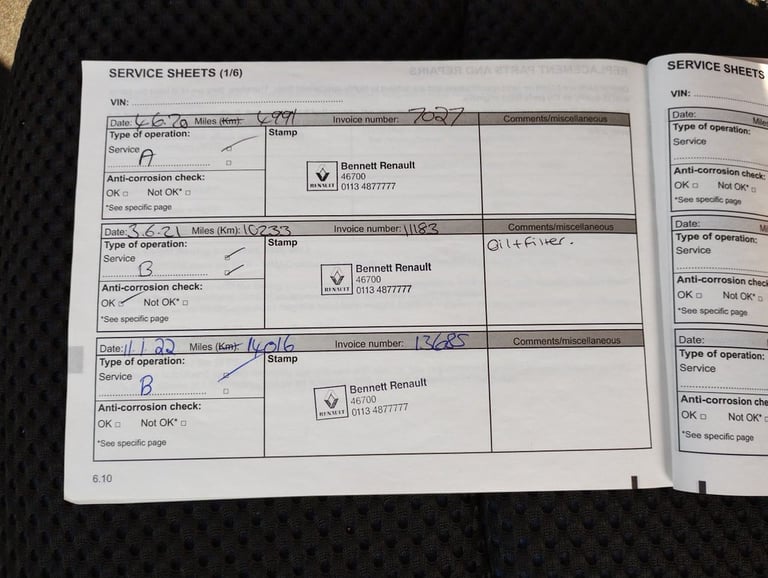 SERVICE SHEETS (1/6)
VIN:
Date: 4.6.20 Miles (Km): 4991 Invoice number: 7027 Comments/miscellaneous
Type of operation: Stamp
Service
A
Bennett Renault
46700
RENAULT 0113 4877777
Anti-corrosion check:
OK Not OK*
*See specific page
Date: 3.6.21 Miles (Km): 10233 Invoice number: 11183 Comments/miscellaneous
Type of operation: Stamp Oil + filter.
Service
B
Bennett Renault
46700
RENAULT 0113 4877777
Anti-corrosion check:
OK Not OK*
*See specific page
Date: 11.1.22 Miles (Km): 14016 Invoice number: 13685 Comments/miscellaneous
Type of operation: Stamp
Service
B
Bennett Renault
46700
RENAULT 0113 4877777
Anti-corrosion check:
OK Not OK*
*See specific page
6.10
SERVICE SHEETS
VIN:
Date: Miles
Type of operation:
Service
Anti-corrosion check:
OK Not OK*
*See specific page
Date: Mi
Type of operation:
Service
Anti-corrosion check:
OK Not OK*
*See specific page
Date:
Type of operation:
Service
Anti-corrosion che
OK Not OK*
*See specific page